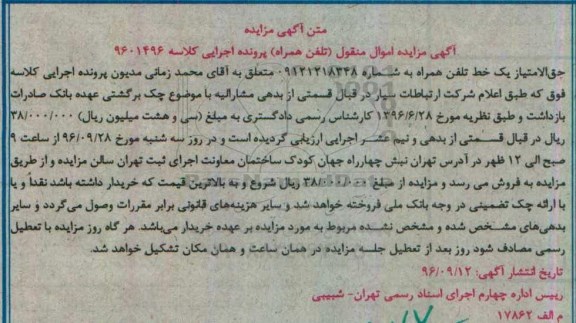 متن آگهی مزایده
آگهی مزایده اموال منقول (تلفن همراه) پرونده اجرایی کلاسه ۹۶۰۱۴۹۶
حق‌الامتیاز یک خط تلفن همراه به شماره ۰۹۱۲۱۲۱۸۳۴۸ متعلق به آقای محمد زمانی مدیون پرونده اجرایی کلاسه
فوق که طبق اعلام شرکت ارتباطات سیار در قبال قسمتی از بدهی مشارالیه با موضوع چک برگشتی عهده بانک صادرات
بازداشت و طبق نظریه مورخ ۱۳۹۶/۶/۲۸ کارشناس رسمی دادگستری به مبلغ (سی و هشت میلیون ریال) ۳۸/۰۰۰/۰۰۰
ریال در قبال قسمتی از بدهی و نیم عشر اجرایی ارزیابی گردیده است و در روز سه شنبه مورخ ۹۶/۰۹/۲۸ از ساعت ۹
صبح الی ۱۲ ظهر در آدرس تهران نبش چهارراه جهان کودک ساختمان معاونت اجرای ثبت تهران سالن مزایده و از طریق
مزایده به فروش می رسد و مزایده از مبلغ ۳۸/۰۰۰/۰۰۰ ریال شروع و به بالاترین قیمت که خریدار داشته باشد نقداً و یا
با ارائه چک تضمینی در وجه بانک ملی فروخته خواهد شد و سایر هزینه‌های قانونی برابر مقررات وصول می‌گردد و سایر
بدهی‌های مشخص شده و مشخص نشده مربوط به مورد مزایده بر عهده خریدار می‌باشد. هر گاه روز مزایده با تعطیل
رسمی مصادف شود روز بعد از تعطیل جلسه مزایده در همان ساعت و همان مکان تشکیل خواهد شد.
تاریخ انتشار آگهی: ۹۶/۰۹/۱۲
رییس اداره چهارم اجرای اسناد رسمی تهران- شبیبی
م الف ۱۷۸۶۲